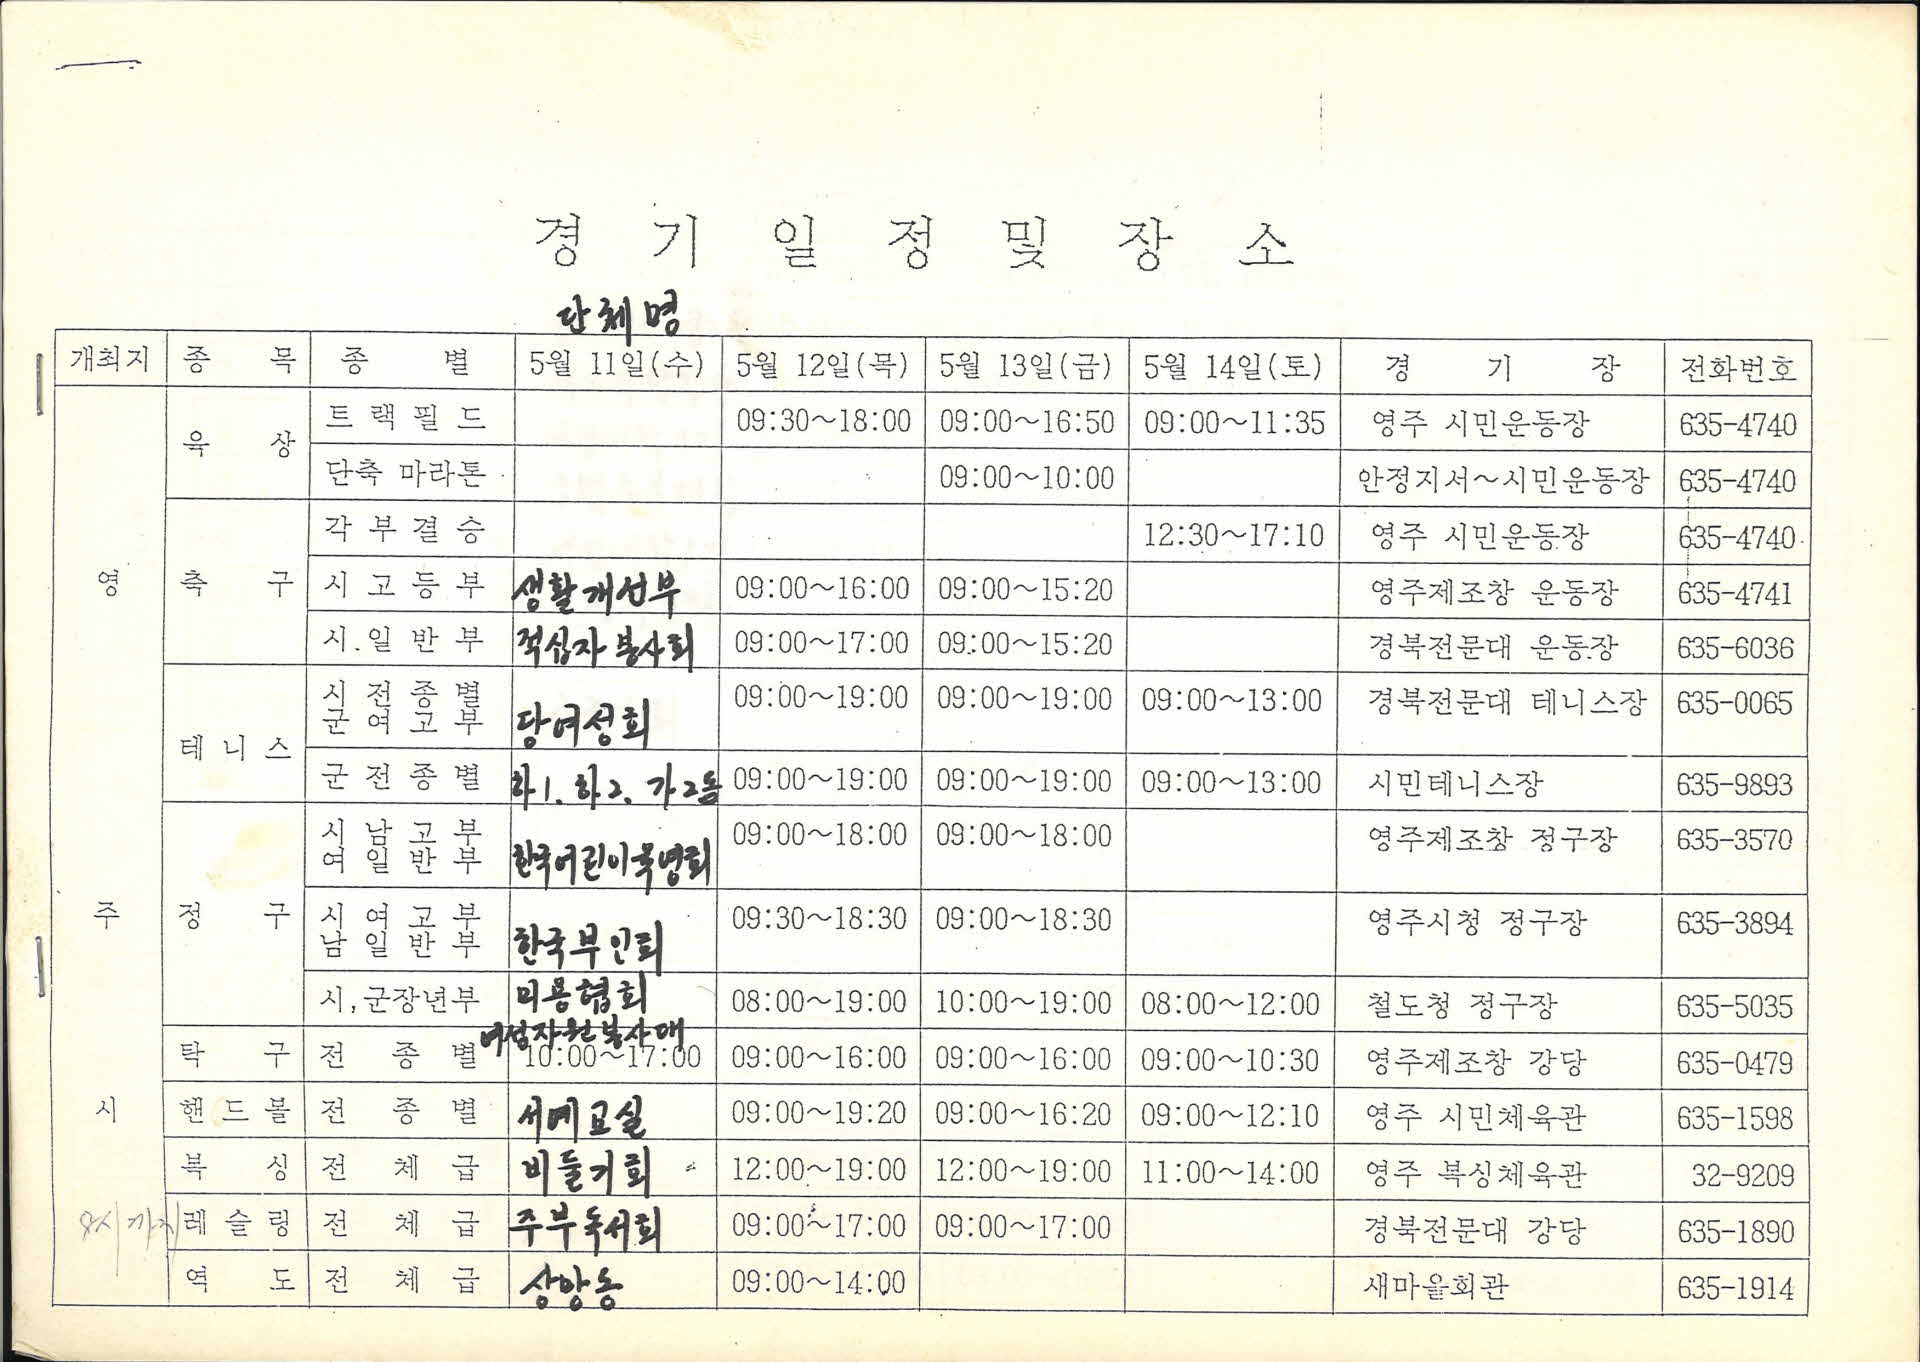 경 기 일 정 및 장 소
단체명
개최지 종 목 종 별 5월 11일(수) 5월 12일(목) 5월 13일(금) 5월 14일(토) 경 기 장 전화번호
영 주 시
육 상 트 랙 필 드 09:30~18:00 09:00~16:50 09:00~11:35 영주 시민운동장 635-4740
단축 마라톤 09:00~10:00 안정지서~시민운동장 635-4740
축 구 각 부 결 승 12:30~17:10 영주 시민운동장 635-4740
시 고 등 부 생활개선부 09:00~16:00 09:00~15:20 영주제조창 운동장 635-4741
시.일 반 부 적십자 봉사회 09:00~17:00 09:00~15:20 경북전문대 운동장 635-6036
테 니 스 시 전 종 별 09:00~19:00 09:00~19:00 09:00~13:00 경북전문대 테니스장 635-0065
군 여 고 부 당여성회
군 전 종 별 하1. 하2. 가2동 09:00~19:00 09:00~19:00 09:00~13:00 시민테니스장 635-9893
정 구 시 남 고 부 09:00~18:00 09:00~18:00 영주제조창 정구장 635-3570
여 일 반 부 한국어린이육영회
시 여 고 부 09:30~18:30 09:00~18:30 영주시청 정구장 635-3894
남 일 반 부 한국부인회
시,군장년부 미용협회 08:00~19:00 10:00~19:00 08:00~12:00 철도청 정구장 635-5035
여성자원봉사대
탁 구 전 종 별 10:00~17:00 09:00~16:00 09:00~16:00 09:00~10:30 영주제조창 강당 635-0479
핸드볼 전 종 별 서예교실 09:00~19:20 09:00~16:20 09:00~12:10 영주 시민체육관 635-1598
복 싱 전 체 급 비둘기회 12:00~19:00 12:00~19:00 11:00~14:00 영주 복싱체육관 32-9209
시까지 레슬링 전 체 급 주부독서회 09:00~17:00 09:00~17:00 경북전문대 강당 635-1890
역 도 전 체 급 상망동 09:00~14:00 새마을회관 635-1914